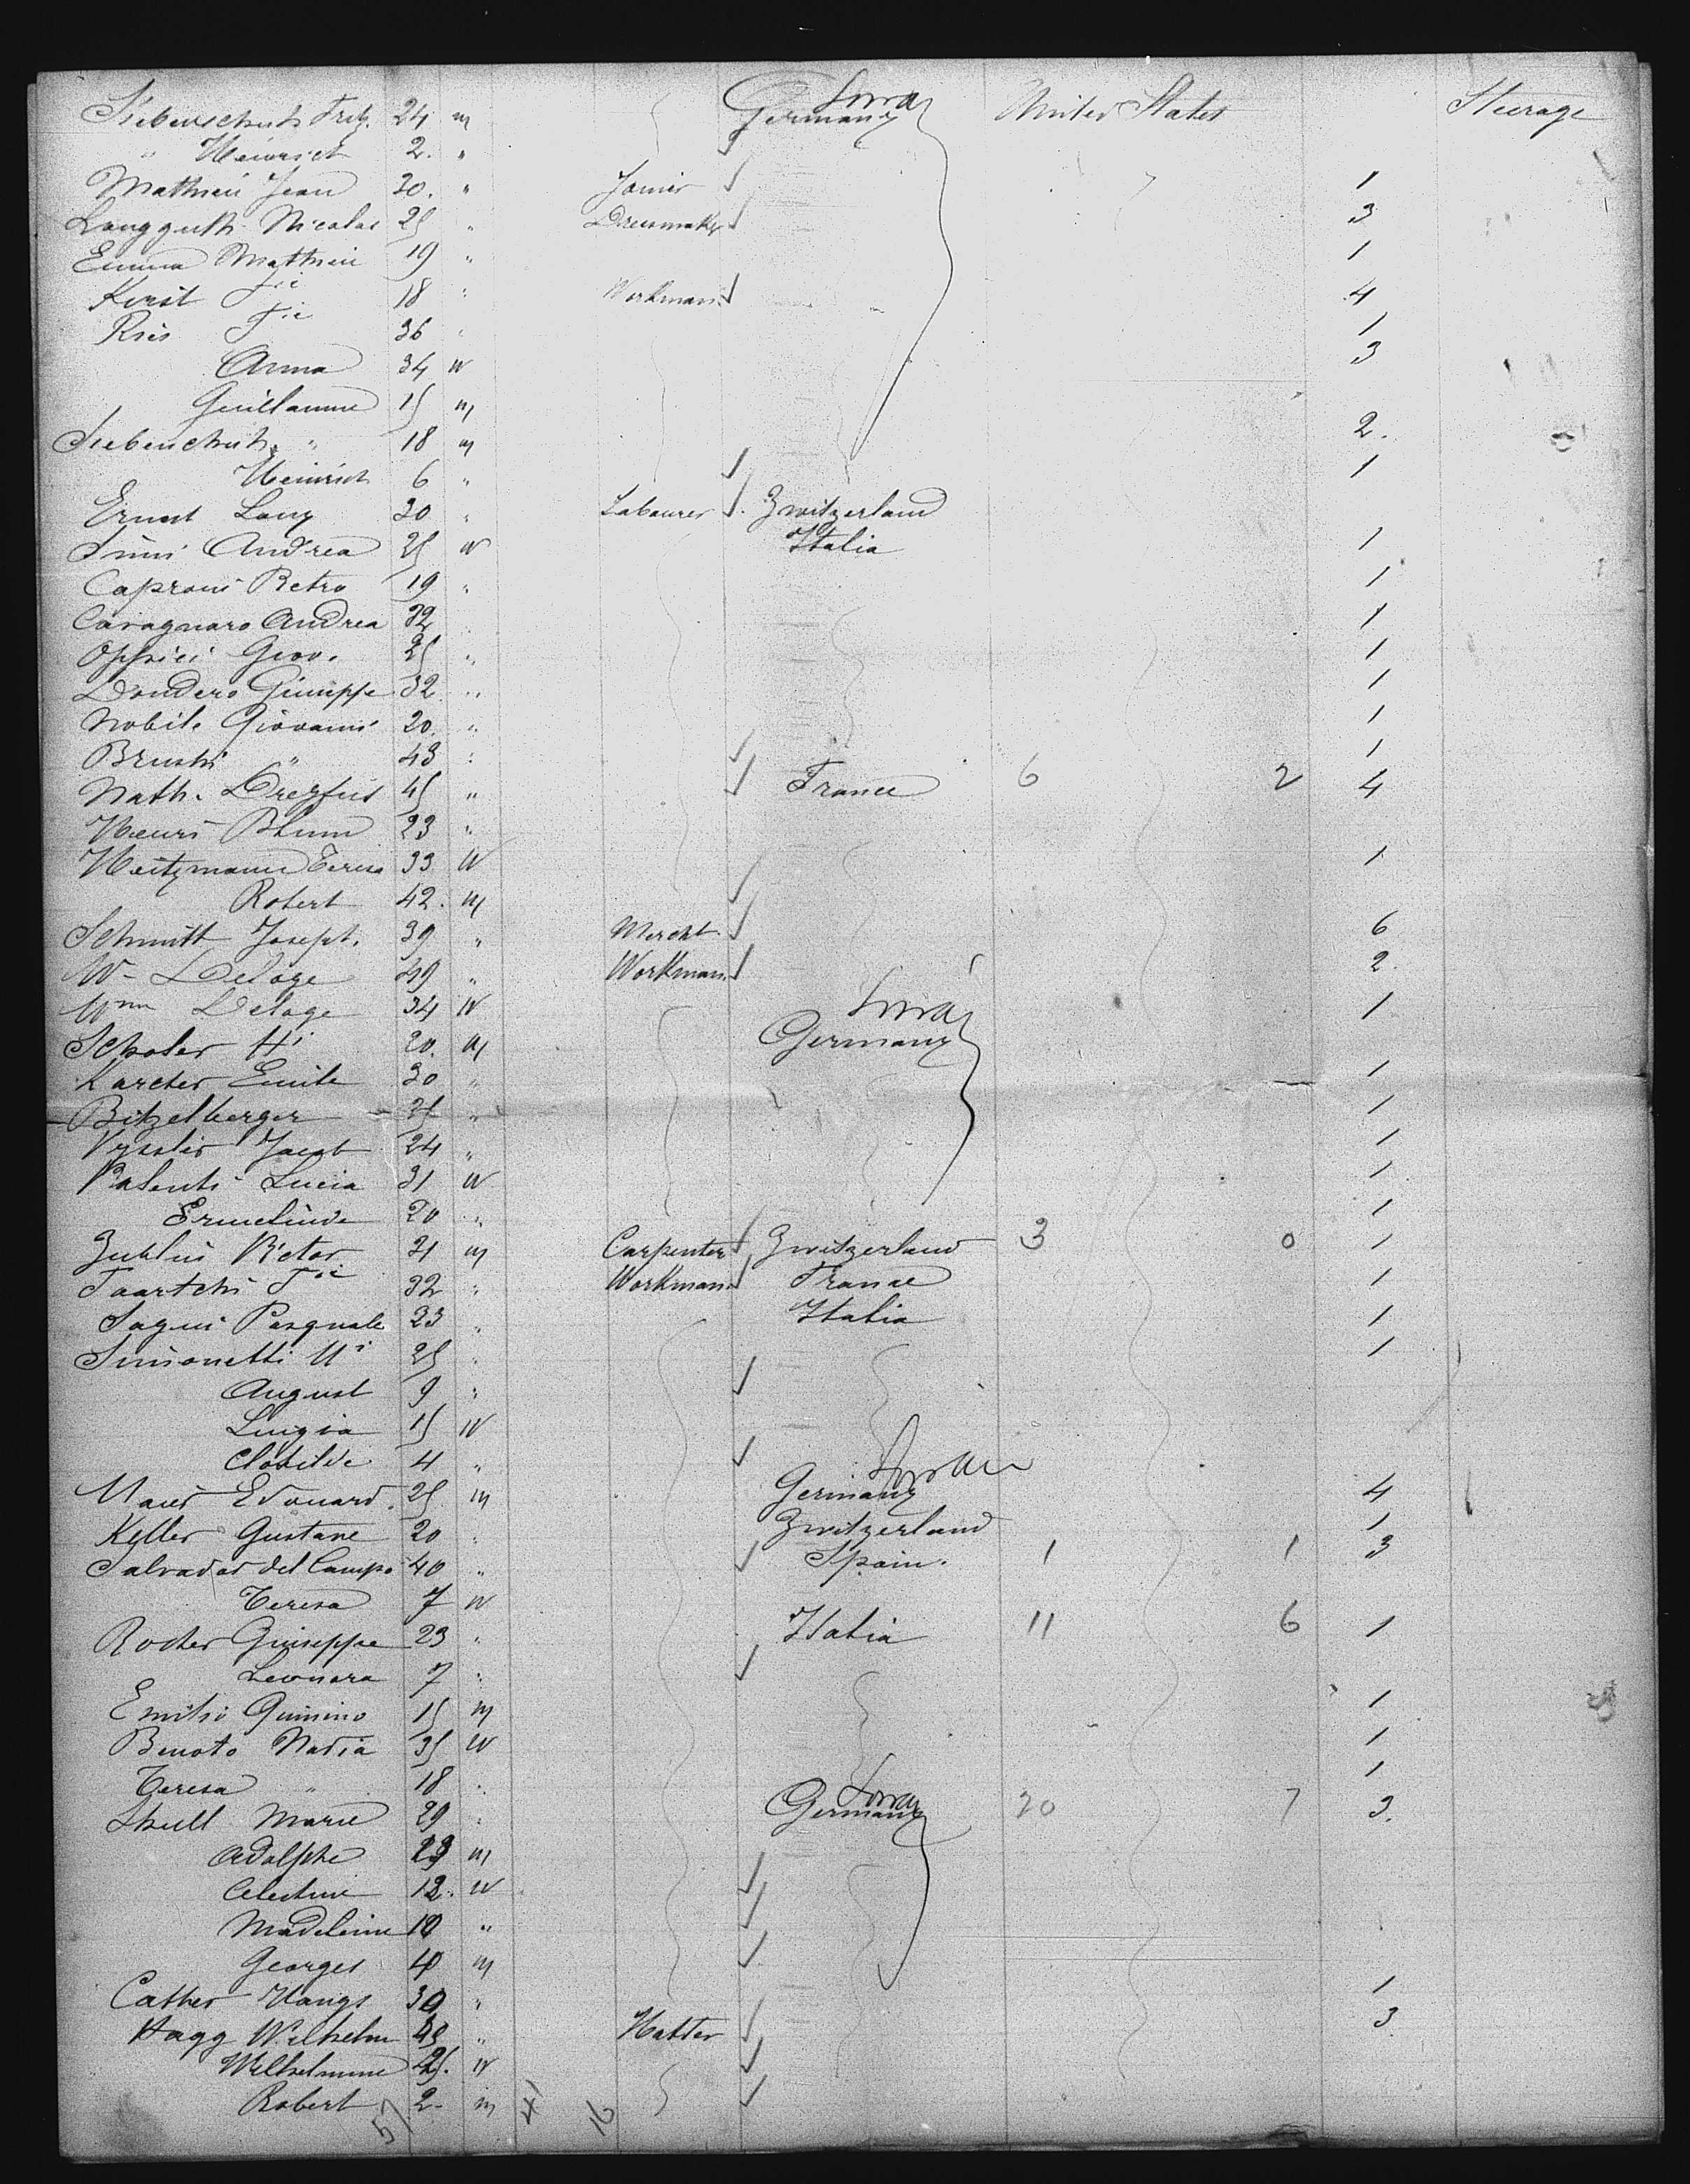 Siebenschuh Fritz. 24 m Germany United States Steerage
" Heinrich 2. "
Mathieu Jean 20. " Joiner 1
Langguth Nicolas 25 " Dressmaker 3
Emma Mathieu 19 " 1
Kerst 18 " Workman 4
Ries 36 " 1
Anna 34 W 3
Guillaume 15 m
Siebenschuh " 18 m 2.
Heinrich 6 " 1
Ernest Lang 30 " Labourer Zwitzerland
Simi Andrea 25 W Italia 1
Caproni Petro 19 " 1
Cavagnaro Andrea 32 1
Oppici Giov. 25 " 1
Dondero Giuseppe 32 " 1
Nobile Giovanni 20. " 1
Bruschi " 43 " 1
Nath. Dreyfus 45 " France 6 2 4
Henri Blum 23 "
Heitzmann Teresa 33 W 1
Robert 42. m
Schmitt Joseph. 39 " Mercht. 6
W- Delage 49 " Workman 2.
Wnn Delage 34 W 1
Scholer Hi 20. m Germany
Karcher Emile 30 " 1
Bitzelberger 25 " 1
Jacob 24 " 1
Valenti Lucia 31 W 1
Ermelinde 20 " 1
Victor 21 m Carpenter Zwitzerland 3 0 1
Taartchi 32 " Workman France 1
Sagui Pasquale 23 " Italia 1
Simonetti 25 " 1
August 9 "
Luigia 15 W
Clotilde 4 "
Edouard. 25 m Germany 4
Keller Gustave 20 " Zwitzerland 1
Salvador del Campo 40 " Spain. 1 1 3
Teresa 7 W
Rocher Giuseppe 23 " Italia 11 6 1
Leonora 7 "
Emilio Guinino 15 m 1
Benoto Maria 35 W 1
Teresa " 18 " 1
Skull Marie 29 " Germany 20 7 3.
Adolphe 23 m
Celestine 12. W
Madeleine 10 "
Georges 4 m
Cather Hangs 30 " 1
Hagg Wilhelm 43 " Hatter 3
Wilhelmine 25. W
Robert 2- m
57 41 16